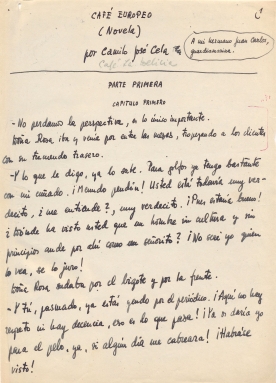 CAFÉ EUROPEO
(Novela)
por Camilo José Cela
A mi hermano Juan Carlos,
guardiamarina!
Café La Delicia
PARTE PRIMERA
CAPITULO PRIMERO
-No perdamos la perspectiva, es lo único importante.
Doña Rosa iba y venía por entre las mesas, tropezando a los clientes
con su tremendo trasero.
-Y lo que le digo, ya lo sabe. Para golfo ya tengo bastante
con mi cuñado. ¡Menudo pendón! Usted está todavía muy ver-
decito, ¿me entiende?, muy verdecito. ¡Pues estaría bueno!
¿Dónde ha visto usted que un hombre sin cultura y sin
principios ande por ahí como un señorito? ¡No seré yo quien
lo vea, se lo juro!
Doña Rosa sudaba por el bigote y por la frente.
-Y tú, pasmado, ya estás yendo por el periódico. ¡Aquí no hay
respeto ni hay decencia, eso es lo que pasa! ¡Ya os daría yo
para el pelo, ya, si algún día me cabreara! ¡Habráse
visto!